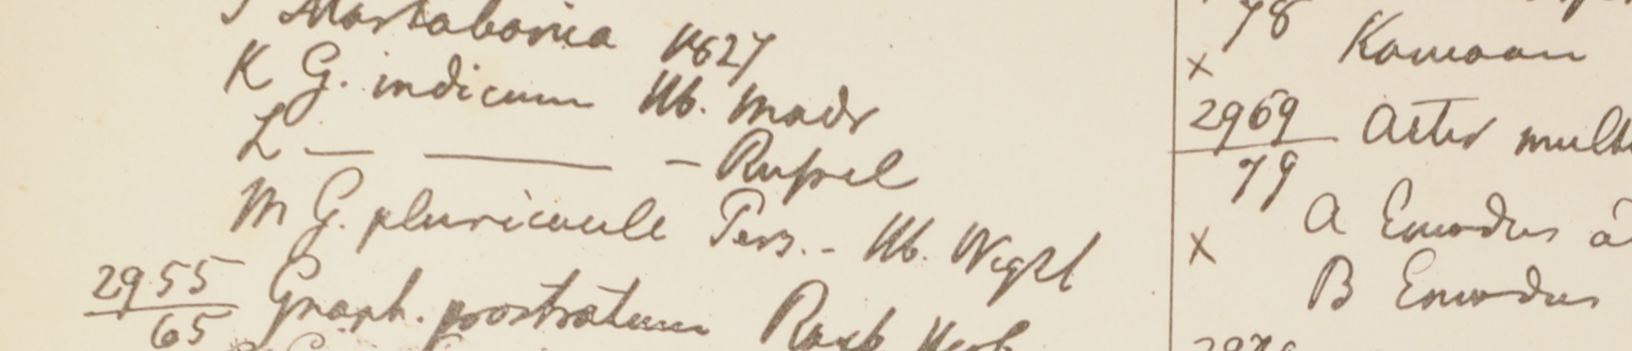 Martabania 1827
K G. indicum Hb. Madr
L — — - Russel
M G. pluricaule Pers. - Hb. Wight
2955 Gnaph. prostratum Roxb Herb
65
78 Kamaon
x
2969 Aster
79
A Emodus
x
B Emodus